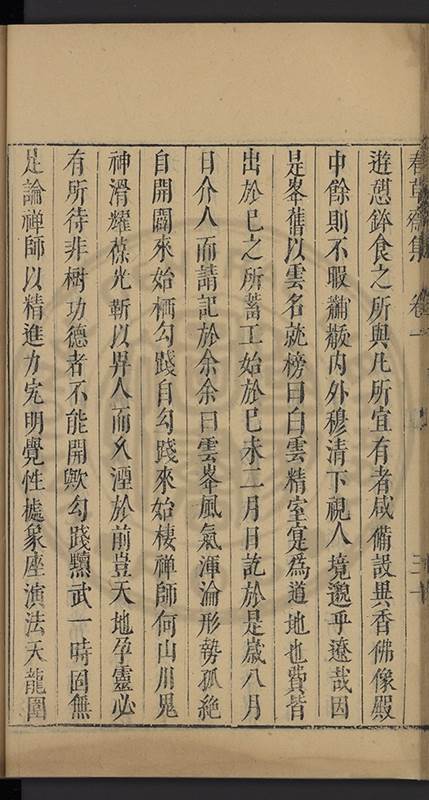 春草齋集 卷十
遊憇鉢食之所與凡所宜有者咸備設異香佛像殿
中餘則不暇黼黻內外穆清下視人境邈乎遼哉因
是峯舊以雲名就榜曰白雲精室寔為道地也費皆
出於巳之所蓄工始於巳未二月日訖於是歲八月
日介人而請記於余余曰雲峯風氣渾淪形勢孤絕
自開闢來始栖勾踐自勾踐來始棲禪師何山川鬼
神滑耀葆光靳以畀人而乆湮於前豈天地孕靈必
有所待非樹功德者不能開歟勾踐黷武一時固無
足論禪師以精進力究明覺性據象座演法天龍圍